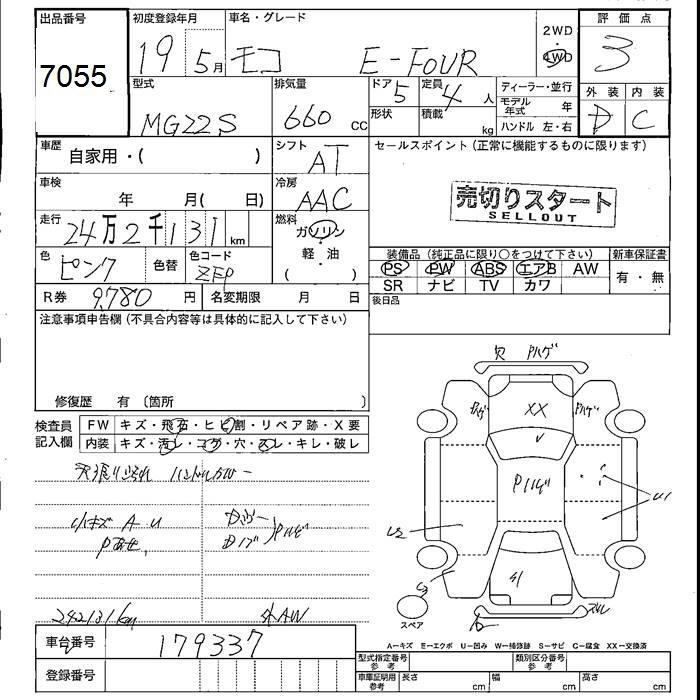 出品番号 初度登録年月 車名・グレード 2WD 評価点
7055 19 5月 モコ E-FOUR 4WD 3
型式 排気量 ドア 定員 ディーラー・並行 外装 内装
MG22S 660 CC 5 4人 モデル年式 年 D C
形状 積載 kg ハンドル 左・右
車歴 自家用・( ) シフト AT セールスポイント(正常に機能するものに限ります)
車検 年 月( 日) 冷房 AAC
売切りスタート
SELLOUT
走行 24万2千131km 燃料 ガソリン・軽油・( )
装備品(純正品に限り○をつけて下さい) 新車保証書
色 ピンク 色替 色コード ZFP PS PW ABS エアB AW 有・無
SR ナビ TV カワ
R券 9,780円 名変期限 月 日 後日品
注意事項申告欄(不具合内容等は具体的に記入して下さい)
修復歴 有 〔箇所
検査員記入欄 FW キズ・飛石・ヒビ割・リペア跡・X要
内装 キズ・汚レ・コゲ・穴・スレ・キレ・破レ
小キズ A U
242131km 外AW
欠 Pハゲ
XX
Pハゲ
Pハゲ
U1
U2
スペア
A−キズ E−エクボ U−凹み W−補修跡 S−サビ C−腐食 XX−交換済
車台番号 179337
型式指定番号 参考 類別区分番号 参考
登録番号 車庫証明用 参考 長さ cm 幅 cm 高さ cm